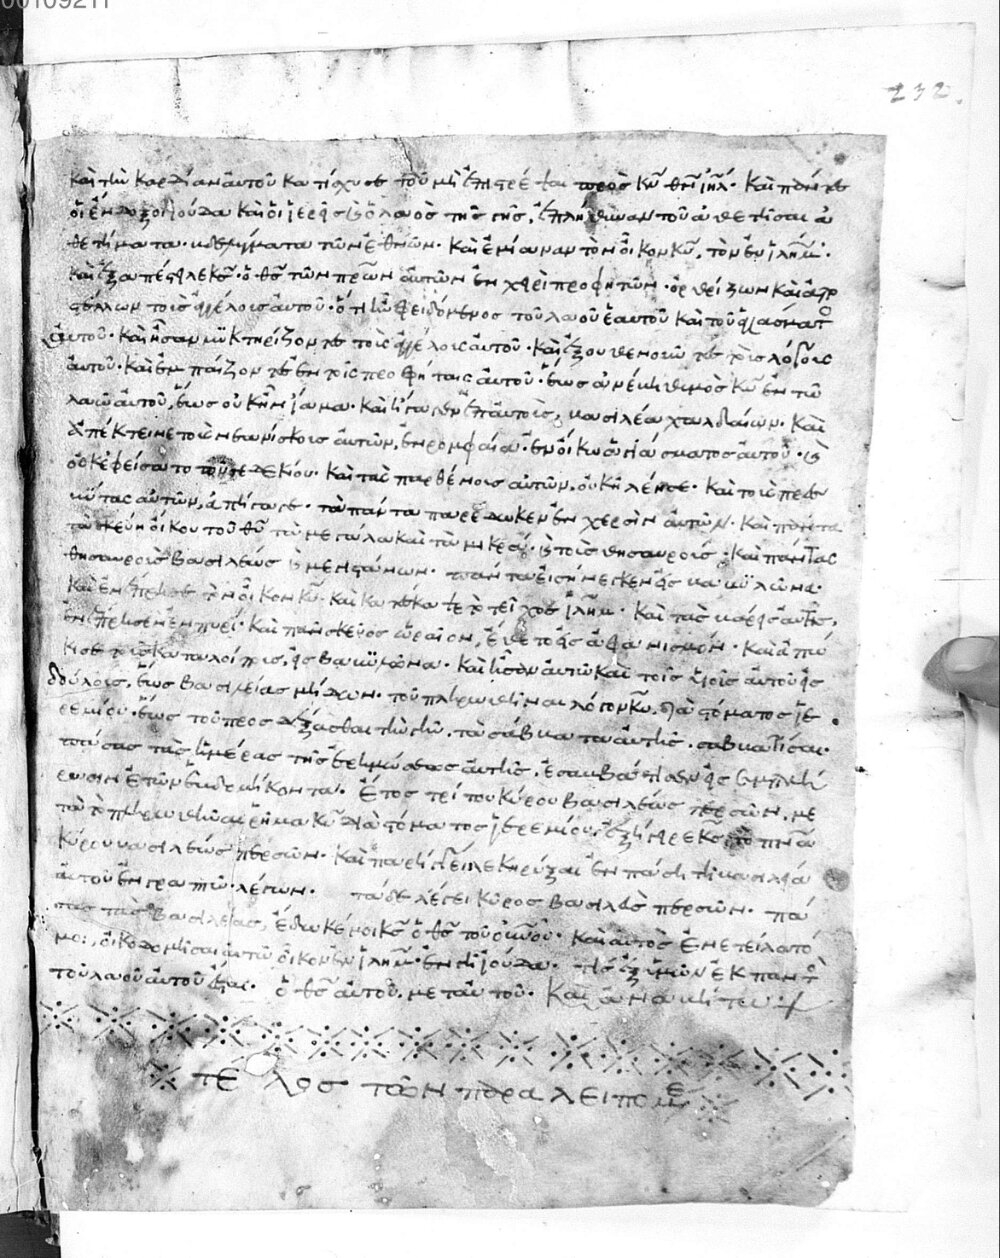 00109211
232.
καὶ τὴν καρδίαν αὐτοῦ κατίσχυσε τοῦ μὴ ἐπιστρέψαι πρὸς κν̄ θν̄ ιηλ̄· καὶ πάντες
οἱ ἔνδοξοι ἰούδα καὶ οἱ ἱερεῖς καὶ ὁ λαὸς τῆς γῆς, ἐπλήθυναν τοῦ ἀθετῆσαι ἀ
θετήματα βδελύγματα τῶν ἐθνῶν· καὶ ἐμίαναν τὸν οἶκον κῡ, τὸν ἐν ιλημ̄·
καὶ ἐξαπέστειλε κς̄ ὁ θς̄ τῶν πρ̄ων αὐτῶν ἐν χειρὶ προφητῶν· ὀρθρίζων καὶ ἀπο
στέλλων τοὺς ἀγγέλους αὐτοῦ· ὅτι ἦν φειδόμενος τοῦ λαοῦ ἑαυτοῦ καὶ τοῦ ἁγιάσματο
αὐτοῦ· καὶ ἦσαν μυκτηρίζοντες τοὺς ἀγγέλους αὐτοῦ· καὶ ἐξουθενοῦντες τοὺς λόγους
αὐτοῦ· καὶ ἐμπαίζοντες ἐν τοῖς προφήταις αὐτοῦ· ἕως ἀνέβη θυμὸς κῡ ἐν τῶ
λαῶ αὐτοῦ, ἕως οὐκ ἦν ἴαμα· καὶ ἤγαγεν ἐπ αὐτοὺς, βασιλέα χαλδαίων· καὶ
ἀπέκτεινε τοὺς νεανίσκους αὐτῶν, ἐν ρομφαία· ἐν οἴκω ἁγιάσματος αὐτοῦ· καὶ
οὐκ ἐφείσατο τοῦ σεδεκίου· καὶ τὰς παρθένους αὐτῶν, οὐκ ἠλέησε· καὶ τοὺς πρεσ
βύτας αὐτῶν, ἀπήγαγε· τὰ πάντα παρέδωκεν ἐν χερσὶν αὐτῶν· καὶ πάντα
τὰ σκεύη οἴκου τοῦ θῡ τὰ μεγάλα καὶ τὰ μικρά· καὶ τοὺς θησαυροὺς· καὶ πάντας
θησαυροὺς βασιλέως καὶ μεγιστάνων· πάντα εἰσήνεγκεν εἰς βαβυλῶνα·
καὶ ἐνέπρησε τὸν οἶκον κῡ· καὶ κατέσκαψε τὸ τεῖχος ιλημ̄· καὶ τὰς βάρεις αὐτῆς,
ἐνέπρησεν ἐν πυρί· καὶ πᾶν σκεῦος ὡραῖον, ἔθετο εἰς ἀφανισμόν· καὶ ἀπώ
κισε τοὺς καταλοίπους, εἰς βαβυλῶνα· καὶ ἦσαν αὐτῶ καὶ τοῖς υἱοῖς αὐτοῦ εἰς
δούλους, ἕως βασιλείας μήδων· τοῦ πληρωθῆναι λόγον κῡ, διὰ στόματος ἱε
ρεμίου· ἕως τοῦ προσδέξασθαι τὴν γῆν, τὰ σάββατα αὐτῆς· σαββατίσαι·
πάσας τὰς ἡμέρας τῆς ἐρημώσεως αὐτῆς, ἐσαββάτισεν εἰς συμπλή
ρωσιν ἐτῶν ἑβδομήκοντα· ἔτος τρίτου κύρου βασιλέως περσῶν, με
τὰ τὸ πληρωθῆναι ρῆμα κῡ διὰ στόματος ἱερεμίου, ἐξήγειρε κς̄ τὸ πνᾱ
κύρου βασιλέως περσῶν· καὶ παρήγγειλε κηρύξαι ἐν πάση τῆ βασιλεία
αὐτοῦ ἐν γραπτῶ λέγων· τάδε λέγει κῦρος βασιλεὺς περσῶν· πά
σας τὰς βασιλείας, ἔδωκέ μοι κς̄ ὁ θς̄ τοῦ οὐν̄οῦ· καὶ αὐτὸς ἐνετείλατό
μοι, οἰκοδομῆσαι αὐτῶ οἶκον ἐν ιλημ̄ ἐν τῆ ἰούδα· τίς ἐξ ὑμῶν ἐκ παντὸ
τοῦ λαοῦ αὐτοῦ ἔσται· ὁ θς̄ αὐτοῦ, μετ αὐτοῦ· καὶ ἀναβήτω:
τέλος τῶν παραλειπομε